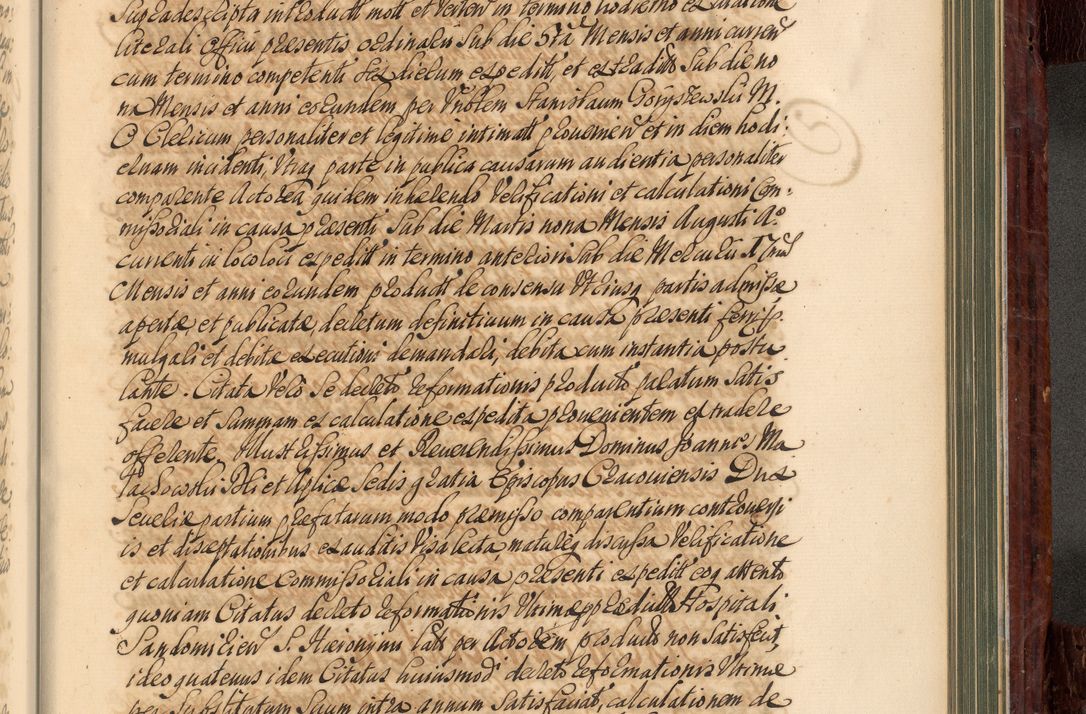 Supradescripta introduct mott et vertent in termino hodierno ex citatione
literali Officii præsentis ordinarii Sub die 5ta Mensis et anni curren
cum termino competenti sex dierum expedit, et extradit Sub die no
na Mensis et anni eorandem per Vnoblem Stanislaum Goryszewski M.
O Clericum personaliter et legitime intimatt provenien et in diem hodi:
ernam incidenti, Vtraq parte in publica causarum audientia personaliter
comparente Actorea quidem inhærendo Verificationi et calculationi Com:
missoriali in causa præsenti Sub die Martis nona Mensis Augusti Ao
currenti in loco loci expedit in termino anteriori Sub die Mercurii 17
Mensis et anni eorandem product de consensu Vtriusq partis admissæ
apertæ, et publicatæ decretum definitivum in causa præsenti ferri p.
mulgari et debitæ executioni demandari, debita cum instantia postu
lante. Citata Vero se decreto reformationis producto paratum Satis
facere et Summam ex calculatione expedita provenientem extradere
offerente. Illustrissimus et Reverendissimus Dominus Joannes Ma
lachowski Dei et Aplicæ Sedis gratia Episcopus Cracoviensis Dux
Severiæ partium præfatarum modo præmisso comparentium controversi
is et disceptationibus exauditis Visa lecta matureq discussa Verificatione
et calculatione Commissoriali in causa præsenti expedit eoq attento
quoniam Citatus decreto reformationis Vltimæ product Hospitali
Sandomirien S. Hieronymi latt per Actorem producto non Satisfecit,
ideo quatenus idem Citatus huiusmodi decreto reformationis Vltimæ
per Substitutum Suum intra annum Satisfaciat, calculationem de